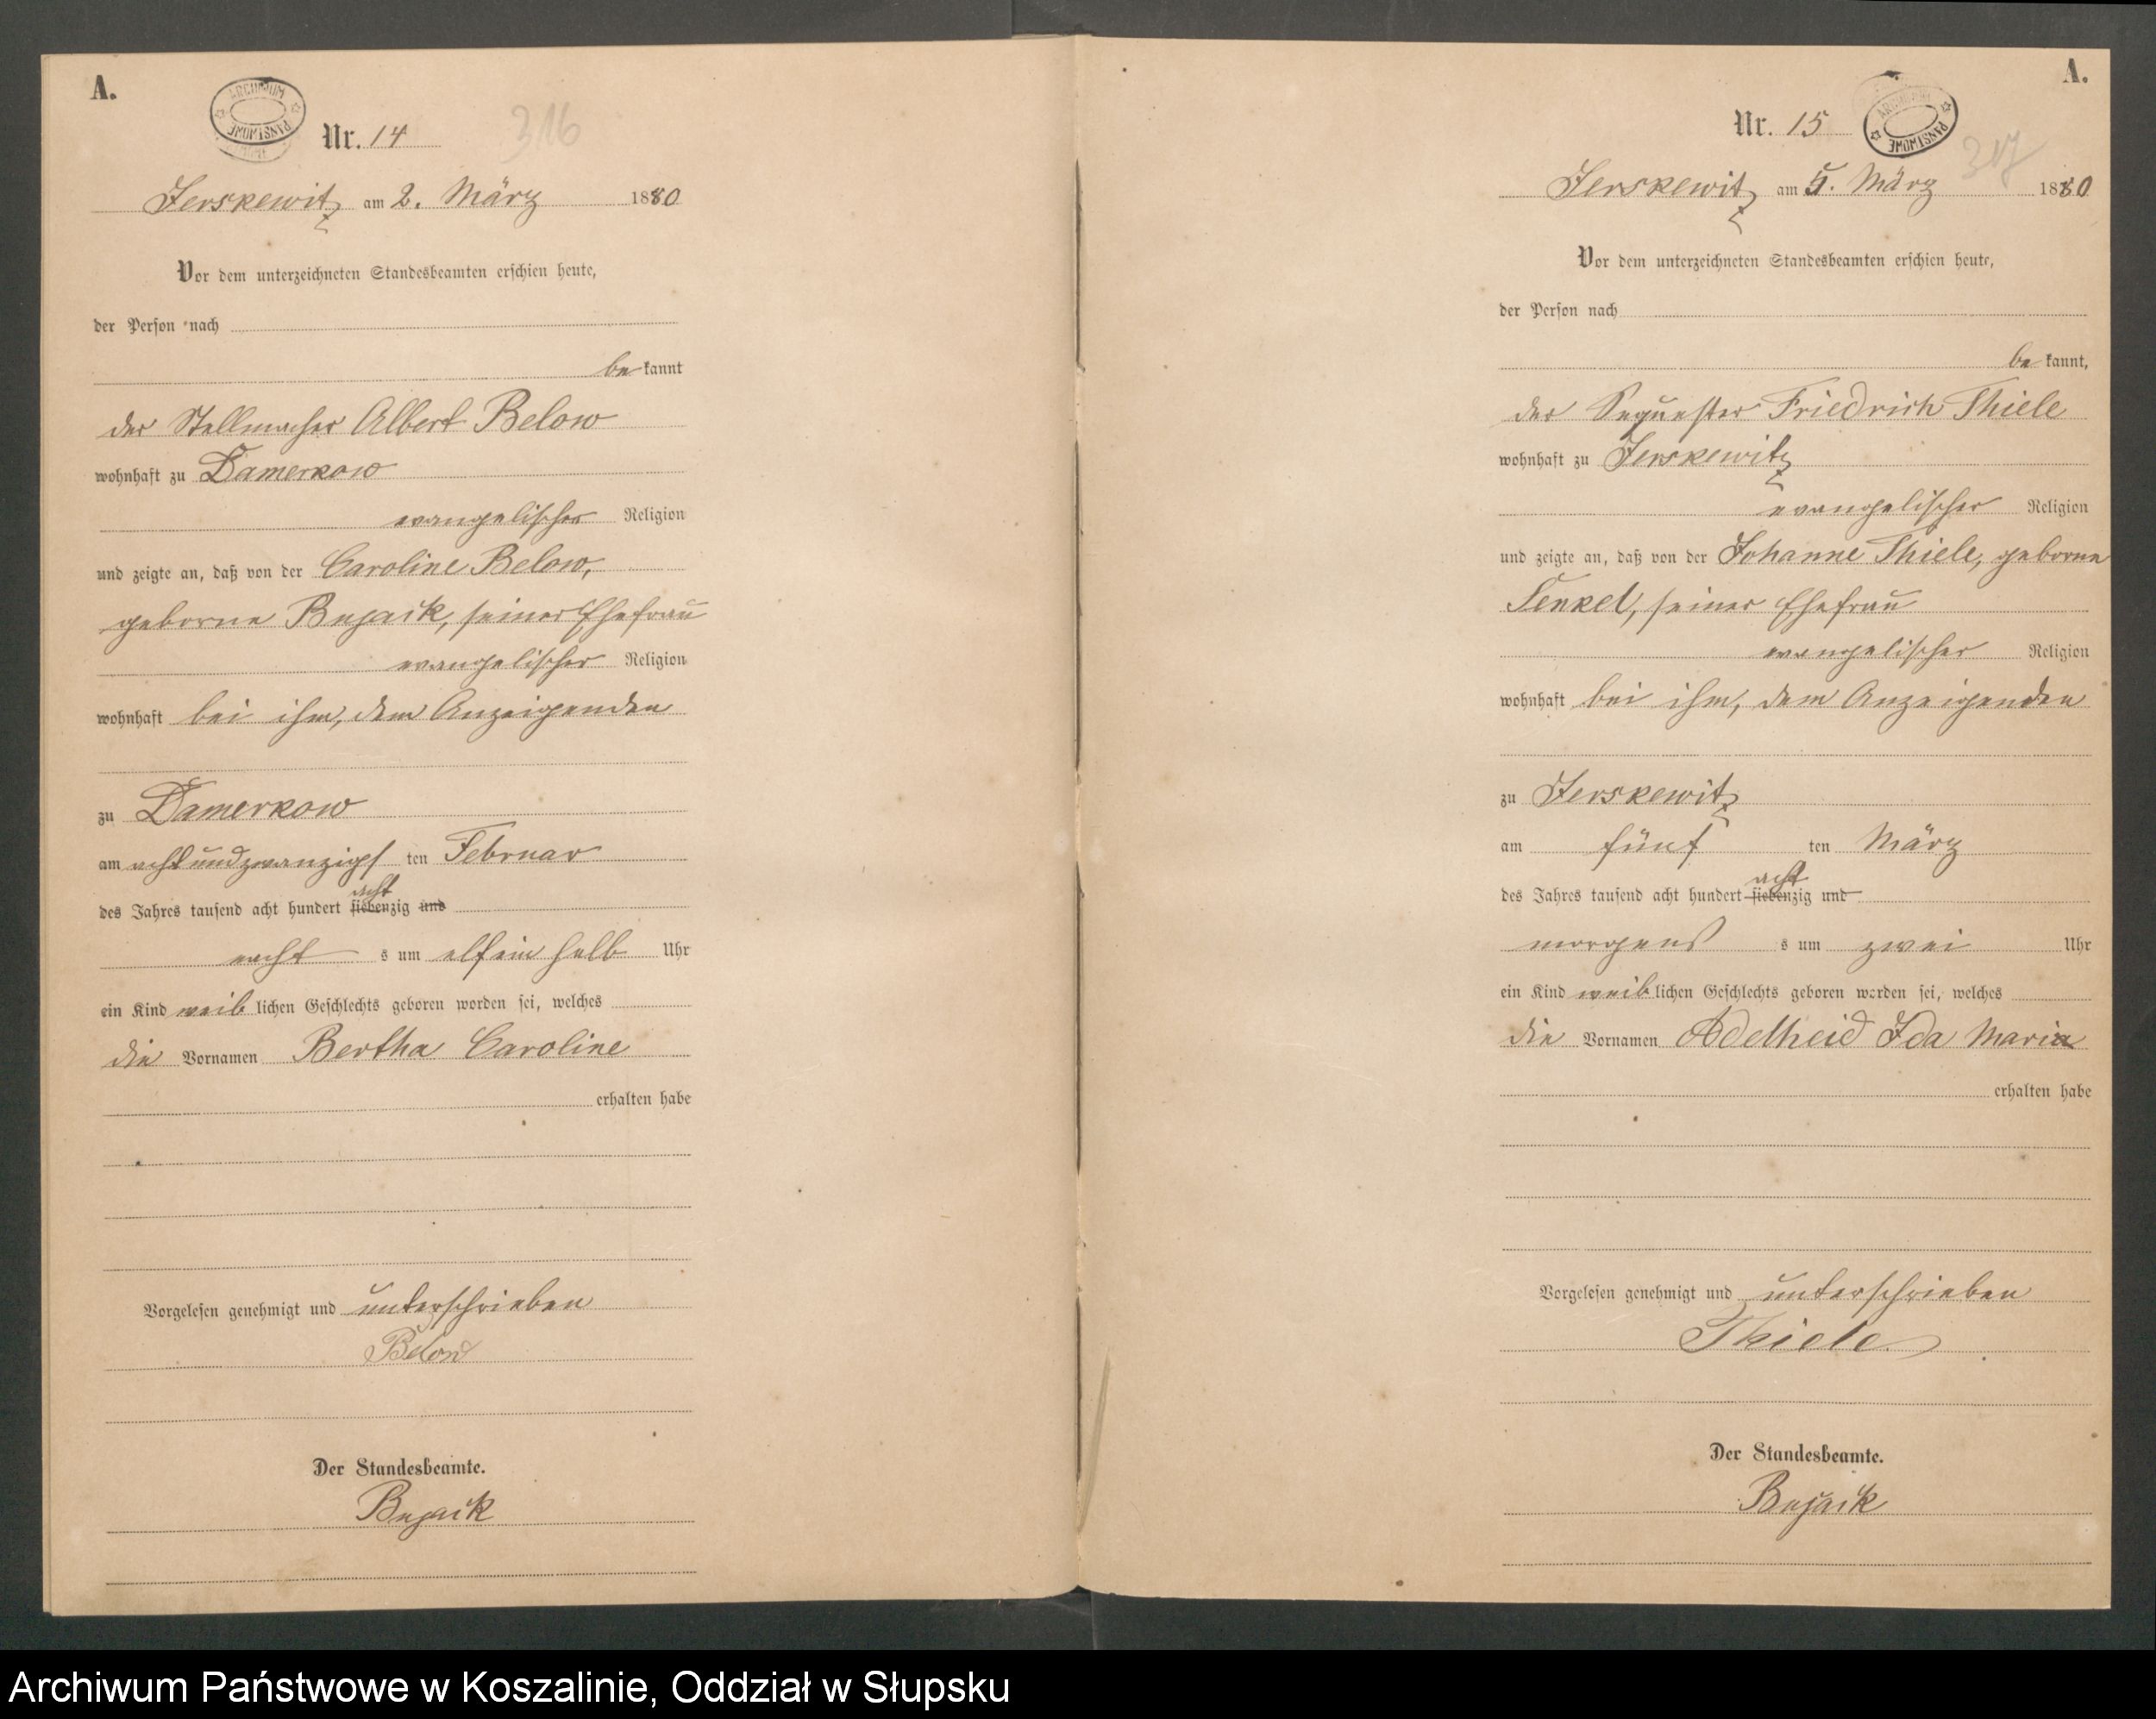 A.
ARCHIWUM PAŃSTWOWE
Nr. 14
316
Jerskewitz am 2. März 1880
Vor dem unterzeichneten Standesbeamten erschien heute,
der Person nach
be kannt
der Stellmacher Albert Below
wohnhaft zu Damerkow
evangelischer Religion
und zeigte an, daß von der Caroline Below,
geborne Bujack, seiner Ehefrau
evangelischer Religion
wohnhaft bei ihm, dem Anzeigenden
zu Damerkow
am achtundzwanzigs ten Februar
acht
des Jahres tausend acht hundert siebenzig und
nacht s um elfeinhalb Uhr
ein Kind weib lichen Geschlechts geboren worden sei, welches
die Vornamen Bertha Caroline
erhalten habe
Vorgelesen genehmigt und unterschrieben
Below
Der Standesbeamte.
A.
Nr. 15
ARCHIWUM PAŃSTWOWE
317
Jerskewitz am 5. März 1880
Vor dem unterzeichneten Standesbeamten erschien heute,
der Person nach
be kannt,
der Sequester Friedrich Thiele
wohnhaft zu Jerskewitz
evangelischer Religion
und zeigte an, daß von der Johanne Thiele, geborne
seiner Ehefrau
evangelischer Religion
wohnhaft bei ihm, dem Anzeigenden
zu Jerskewitz
am fünf ten März
acht
des Jahres tausend acht hundert siebenzig und
morgens s um zwei Uhr
ein Kind weib lichen Geschlechts geboren worden sei, welches
die Vornamen Adelheid Ida Maria
erhalten habe
Vorgelesen genehmigt und unterschrieben
Thiele
Der Standesbeamte.
Archiwum Państwowe w Koszalinie, Oddział w Słupsku